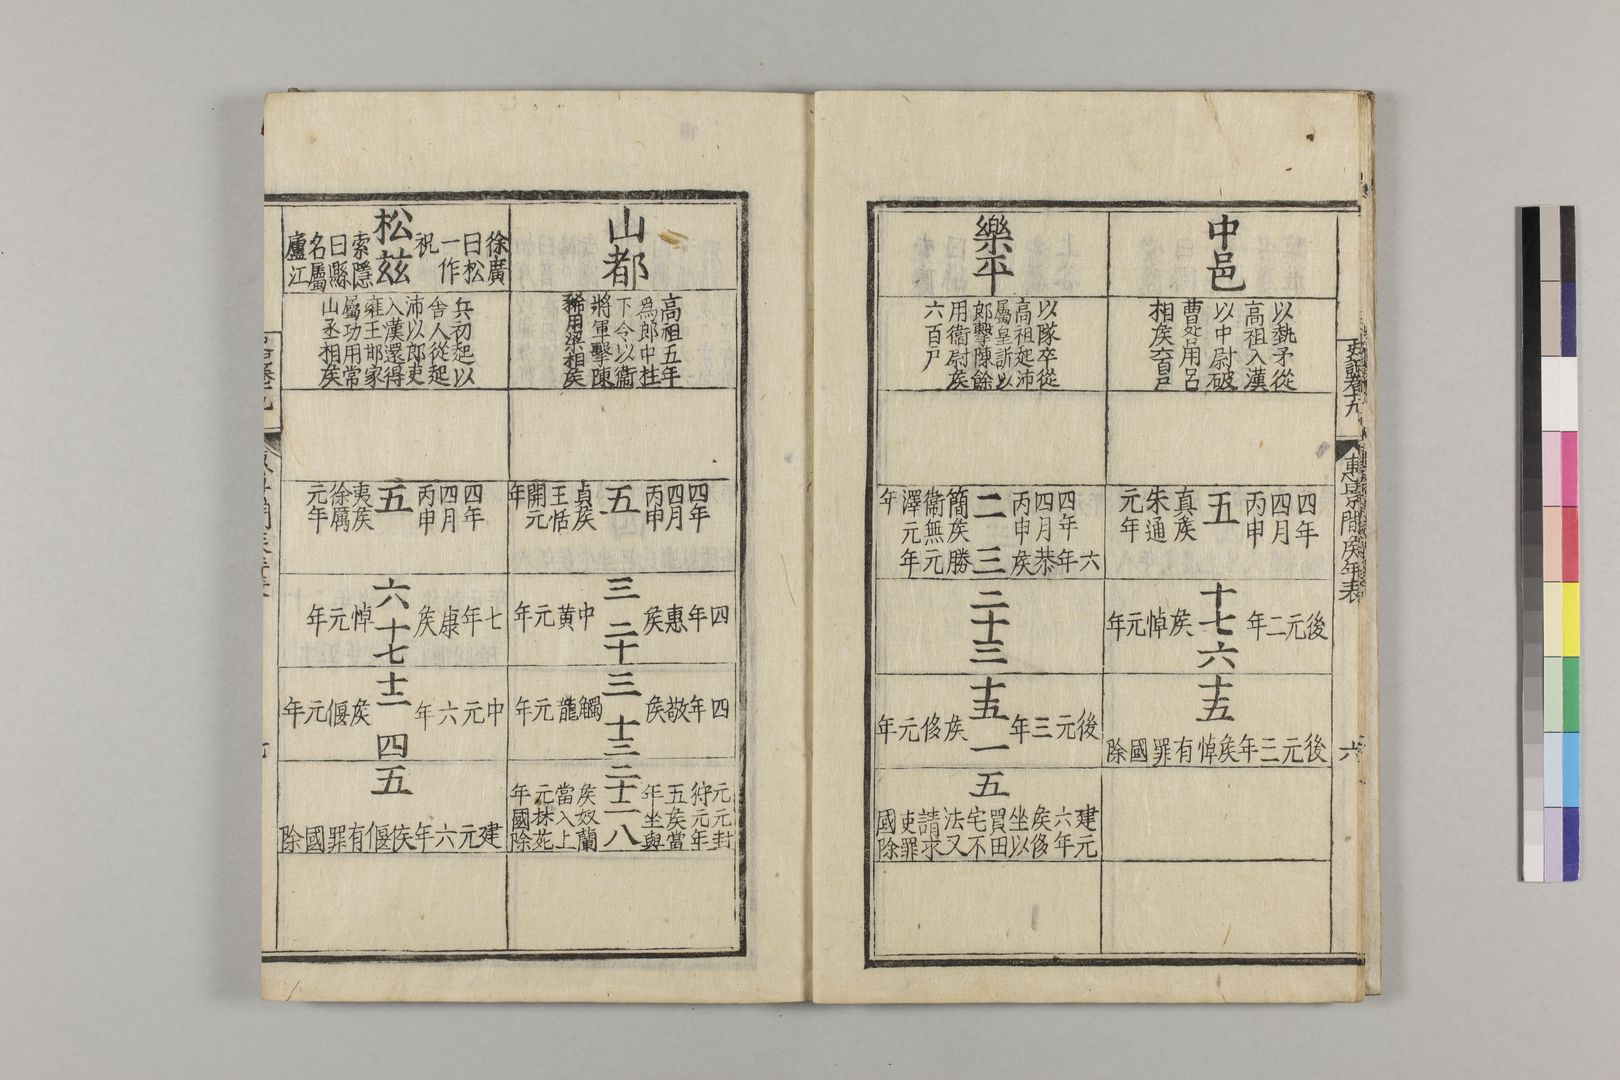 史記卷十九
惠景間侯年表
六
中邑
以執矛從
高祖入漢
以中尉破
曹咎用呂
相矦六百戸
四年
四月
丙申
五
真矦
朱通
元年
後元二年
十七
六
矦悼元年
十五
後元三年矦悼有罪國除
樂平
以隊卒從
高祖起沛
屬皇訢以
郎擊陳餘
用衞尉矦
六百戸
四年
四月
丙申
二
簡矦
衞無
澤元
年
六年
恭矦
三
勝元年
二十三
後元三年
十五
一
矦侈元年
五
建元
六年
矦侈
坐以
買田
宅不
法又
請求
吏罪
國除
山都
高祖五年
爲郎中柱
下令以衞
將軍擊陳
豨用梁相矦
四年
四月
丙申
五
貞矦
王恬
開元
年
四年惠矦
三
二十
中黃元年
四年敬矦
三
十三
觸龍元年
二十二
八
元狩
五年
矦當
元封
元年
坐與
奴蘭
入上
林苑
國除
徐廣
曰松
一作
祝
松茲
索隱
曰縣
名屬
廬江
兵初起以
舍人從起
沛以郎吏
入漢還得
雍王邯家
屬功用常
山丞相矦
四年
四月
丙申
五
夷矦
徐厲
元年
七年康矦
六
十七
悼元年
中元六年
十二
四
矦偃元年
五
建元六年矦偃有罪國除